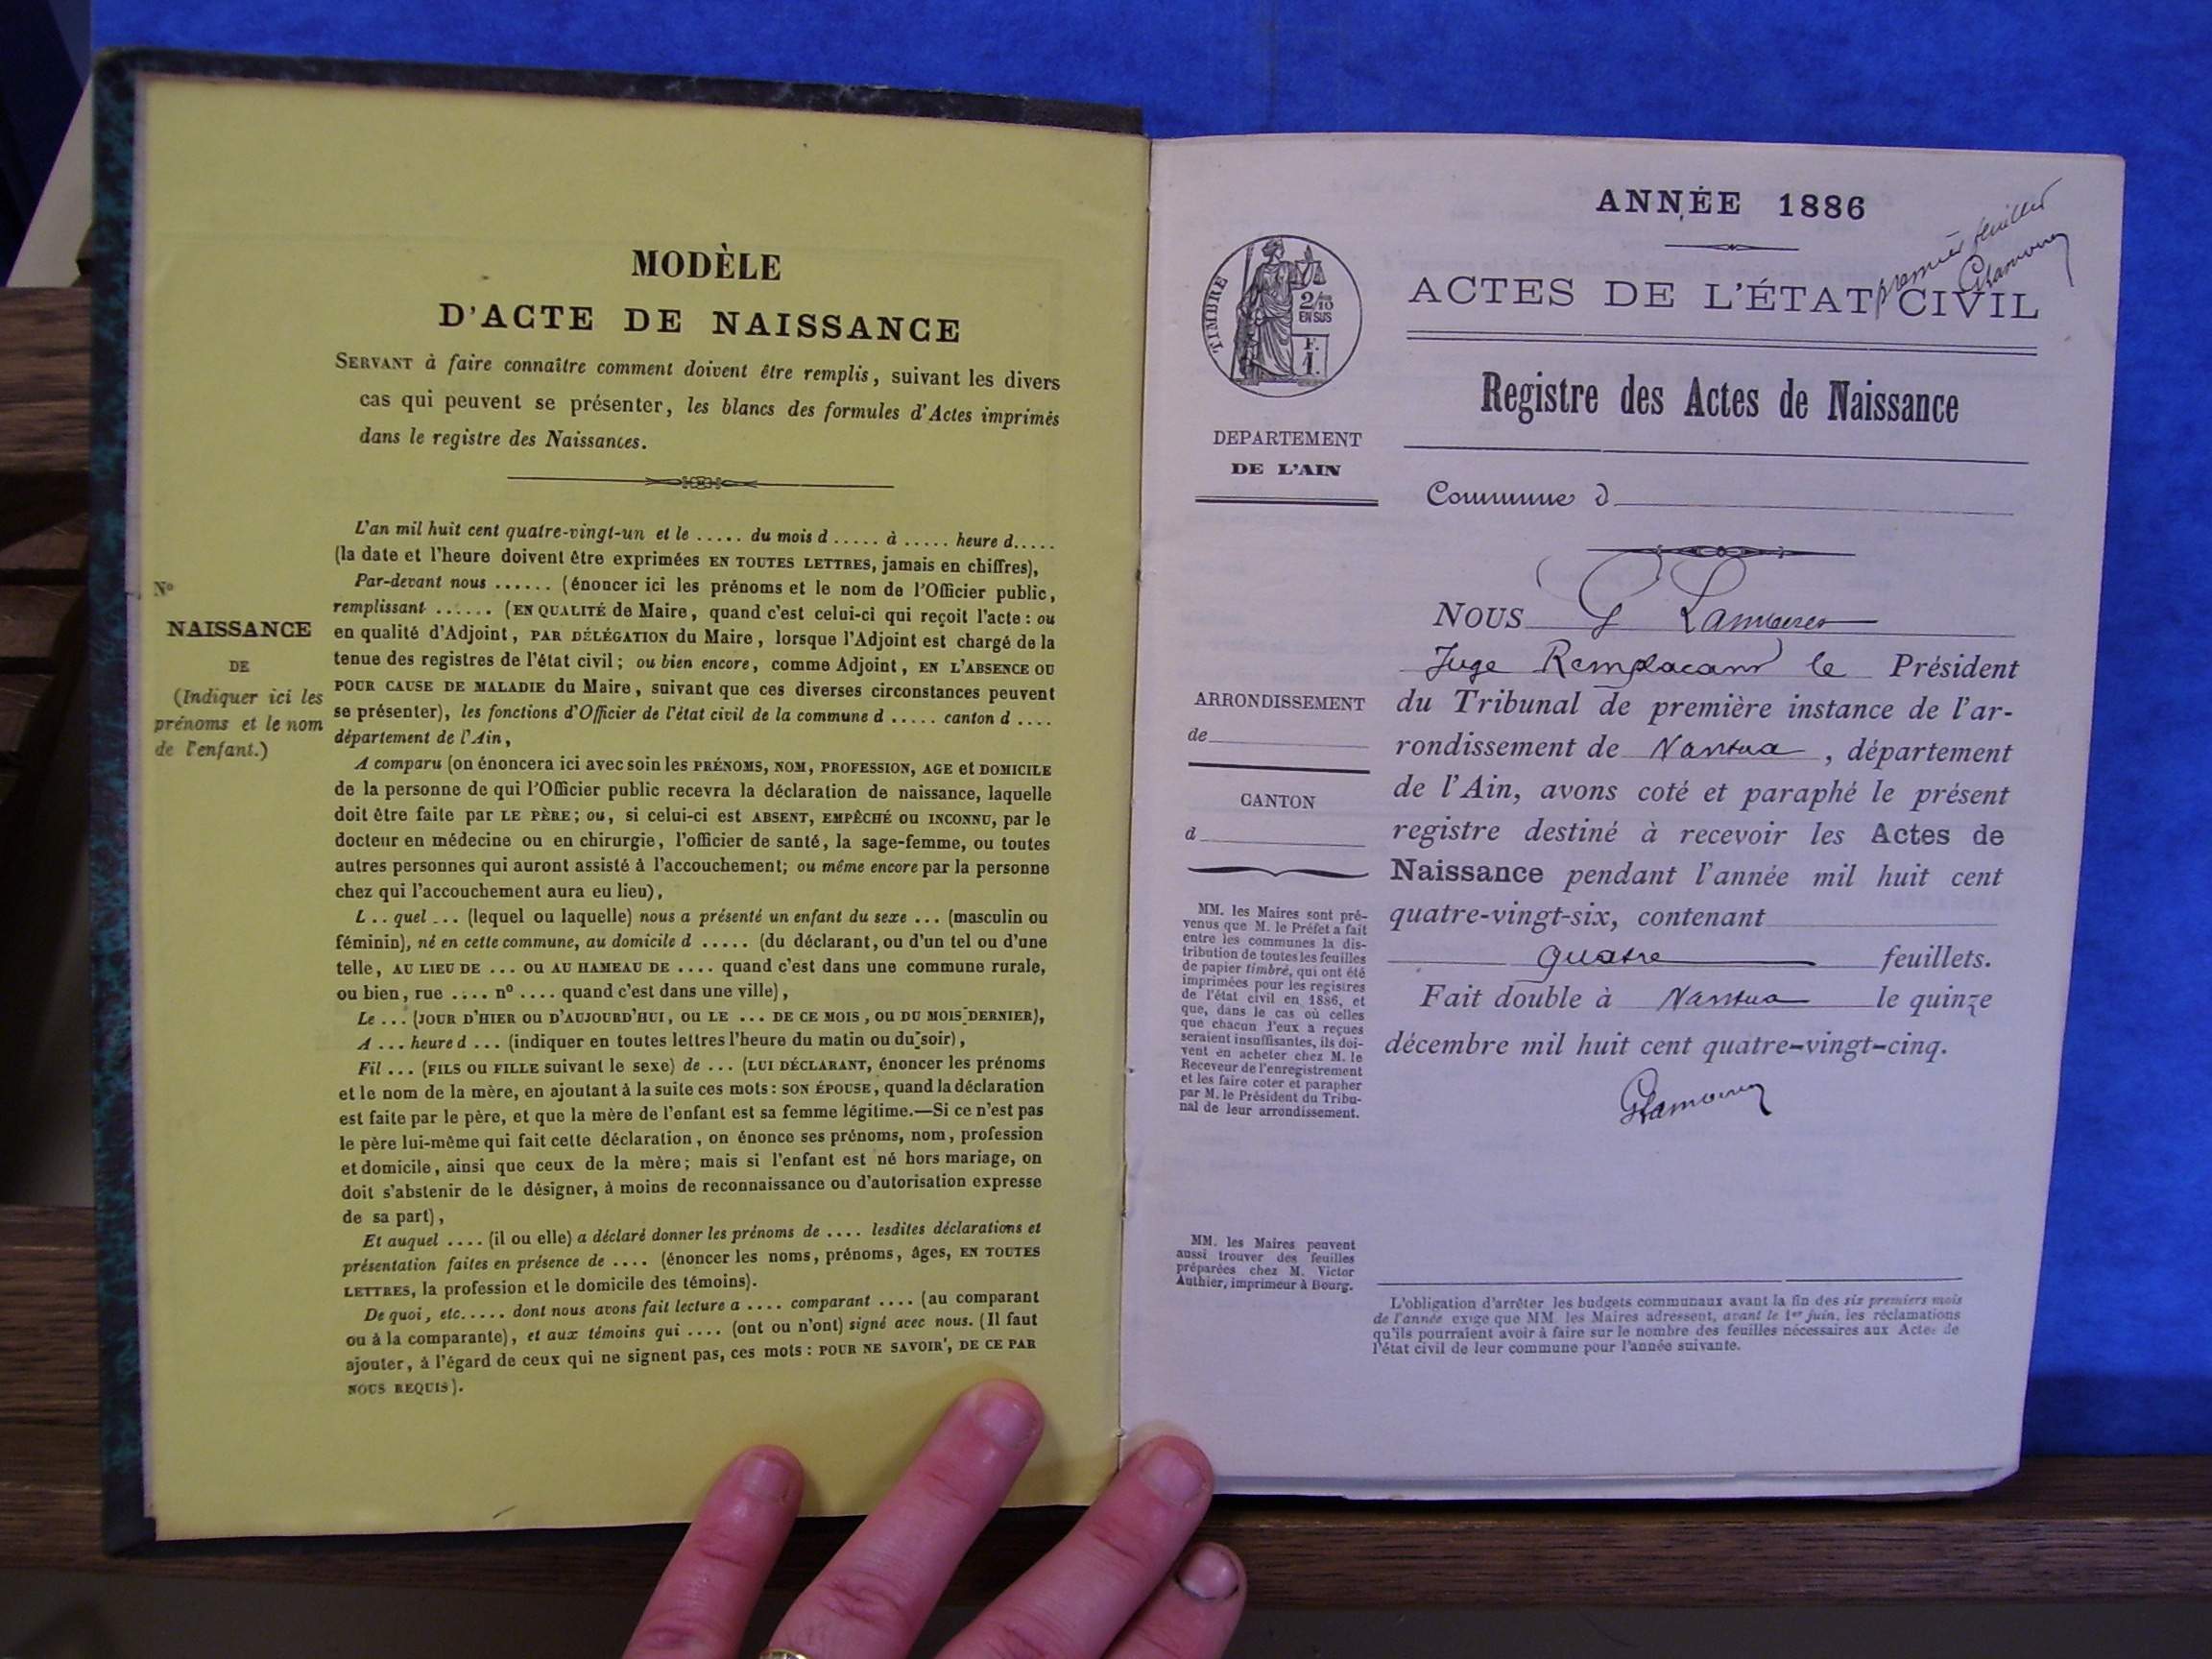 MODÈLE
D'ACTE DE NAISSANCE
SERVANT à faire connaître comment doivent être remplis, suivant les divers
cas qui peuvent se présenter, les blancs des formules d'Actes imprimés
dans le registre des Naissances.
L'an mil huit cent quatre-vingt-un et le ..... du mois d ..... à ..... heure d.....
(la date et l'heure doivent être exprimées EN TOUTES LETTRES, jamais en chiffres),
Par-devant nous ...... (énoncer ici les prénoms et le nom de l'Officier public,
remplissant ...... (EN QUALITÉ de Maire, quand c'est celui-ci qui reçoit l'acte : ou
en qualité d'Adjoint, PAR DÉLÉGATION du Maire, lorsque l'Adjoint est chargé de la
tenue des registres de l'état civil; ou bien encore, comme Adjoint, EN L'ABSENCE OU
POUR CAUSE DE MALADIE du Maire, suivant que ces diverses circonstances peuvent
se présenter), les fonctions d'Officier de l'état civil de la commune d ..... canton d ....
département de l'Ain,
A comparu (on énoncera ici avec soin les PRÉNOMS, NOM, PROFESSION, AGE et DOMICILE
de la personne de qui l'Officier public recevra la déclaration de naissance, laquelle
doit être faite par LE PÈRE; ou, si celui-ci est ABSENT, EMPÊCHÉ ou INCONNU, par le
docteur en médecine ou en chirurgie, l'officier de santé, la sage-femme, ou toutes
autres personnes qui auront assisté à l'accouchement; ou même encore par la personne
chez qui l'accouchement aura eu lieu),
L .. quel ... (lequel ou laquelle) nous a présenté un enfant du sexe ... (masculin ou
féminin), né en cette commune, au domicile d ..... (du déclarant, ou d'un tel ou d'une
telle, AU LIEU DE ... OU AU HAMEAU DE .... quand c'est dans une commune rurale,
ou bien, rue .... n° .... quand c'est dans une ville),
Le ... (JOUR D'HIER OU D'AUJOURD'HUI, OU LE ... DE CE MOIS, OU DU MOIS DERNIER),
A ... heure d ... (indiquer en toutes lettres l'heure du matin ou du soir),
Fil ... (FILS OU FILLE suivant le sexe) de ... (LUI DÉCLARANT, énoncer les prénoms
et le nom de la mère, en ajoutant à la suite ces mots : SON ÉPOUSE, quand la déclaration
est faite par le père, et que la mère de l'enfant est sa femme légitime.—Si ce n'est pas
le père lui-même qui fait cette déclaration, on énonce ses prénoms, nom, profession
et domicile, ainsi que ceux de la mère; mais si l'enfant est né hors mariage, on
doit s'abstenir de le désigner, à moins de reconnaissance ou d'autorisation expresse
de sa part),
Et auquel .... (il ou elle) a déclaré donner les prénoms de .... lesdites déclarations et
présentation faites en présence de .... (énoncer les noms, prénoms, âges, EN TOUTES
LETTRES, la profession et le domicile des témoins).
De quoi, etc..... dont nous avons fait lecture a .... comparant .... (au comparant
ou à la comparante), et aux témoins qui .... (ont ou n'ont) signé avec nous. (Il faut
ajouter, à l'égard de ceux qui ne signent pas, ces mots : POUR NE SAVOIR, DE CE PAR
NOUS REQUIS).
N°
NAISSANCE
DE
(Indiquer ici les
prénoms et le nom
de l'enfant.)
ANNÉE 1886
premier feuillet
ACTES DE L'ÉTAT CIVIL
TIMBRE
2/10
EN SUS
F.
1.
Registre des Actes de Naissance
DEPARTEMENT
DE L'AIN
Commune d
NOUS
Juge Remplaçant le Président
du Tribunal de première instance de l'ar-
rondissement de Nantua, département
de l'Ain, avons coté et paraphé le présent
registre destiné à recevoir les Actes de
Naissance pendant l'année mil huit cent
quatre-vingt-six, contenant
quatre feuillets.
Fait double à Nantua le quinze
décembre mil huit cent quatre-vingt-cinq.
ARRONDISSEMENT
de
CANTON
d
MM. les Maires sont pré-
venus que M. le Préfet a fait
entre les communes la dis-
tribution de toutes les feuilles
de papier timbré, qui ont été
imprimées pour les registres
de l'état civil en 1886, et
que, dans le cas où celles
que chacun d'eux a reçues
seraient insuffisantes, ils doi-
vent en acheter chez M. le
Receveur de l'enregistrement
et les faire coter et parapher
par M. le Président du Tribu-
nal de leur arrondissement.
MM. les Maires peuvent
aussi trouver des feuilles
préparées chez M. Victor
Authier, imprimeur à Bourg.
L'obligation d'arrêter les budgets communaux avant la fin des six premiers mois
de l'année exige que MM. les Maires adressent, avant le 1er juin, les réclamations
qu'ils pourraient avoir à faire sur le nombre des feuilles nécessaires aux Actes de
l'état civil de leur commune pour l'année suivante.